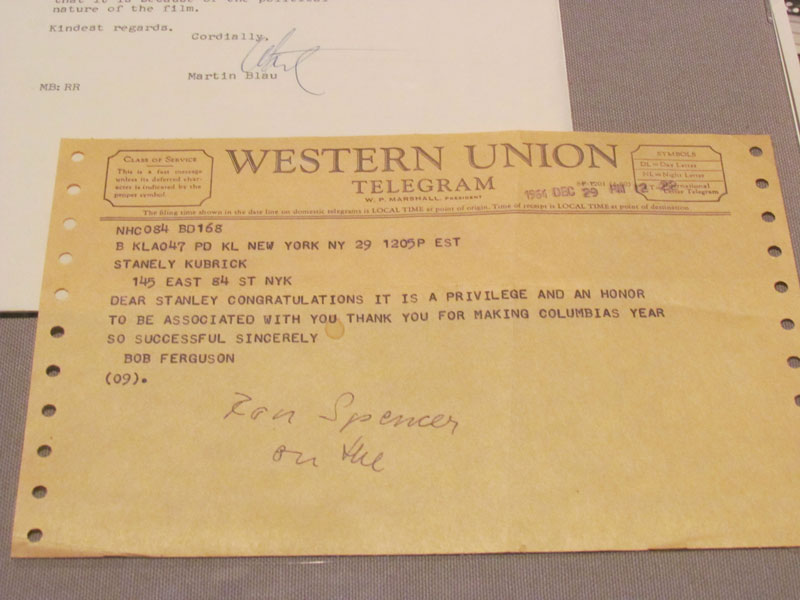 that it is because of the political
nature of the film.
Kindest regards.
Cordially,
Martin Blau
MB:RR
CLASS OF SERVICE
This is a fast message
unless its deferred char-
acter is indicated by the
proper symbol.
WESTERN UNION
TELEGRAM
W. P. MARSHALL, PRESIDENT
SYMBOLS
DL=Day Letter
NL=Night Letter
1964 DEC 29
The filing time shown in the date line on domestic telegrams is LOCAL TIME at point of origin. Time of receipt is LOCAL TIME at point of destination
NHC084 BD168
B KLA047 PD KL NEW YORK NY 29 1205P EST
STANELY KUBRICK
145 EAST 84 ST NYK
DEAR STANLEY CONGRATULATIONS IT IS A PRIVILEGE AND AN HONOR
TO BE ASSOCIATED WITH YOU THANK YOU FOR MAKING COLUMBIAS YEAR
SO SUCCESSFUL SINCERELY
BOB FERGUSON
(09).
Ran Spencer
on the